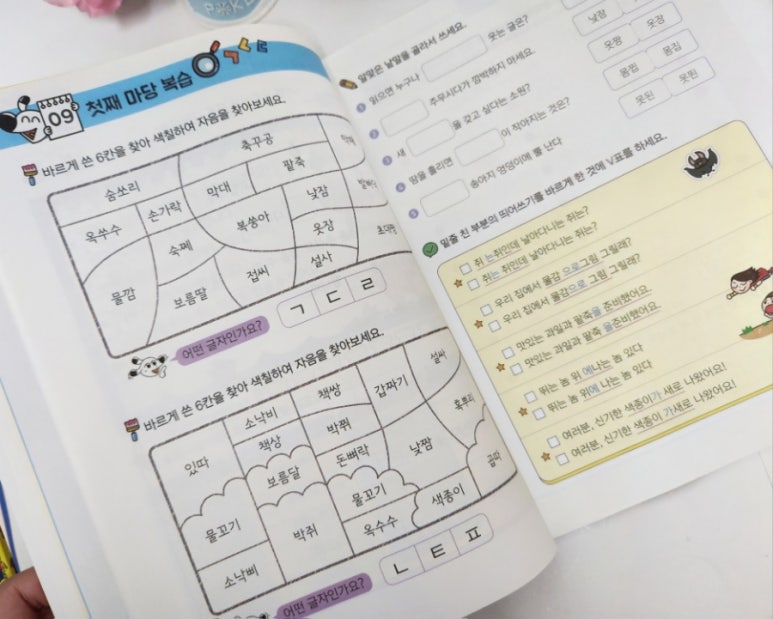 09
첫째 마당 복습
바르게 쓴 6칸을 찾아 색칠하여 자음을 찾아보세요.
숨쏘리
축꾸공
옥쑤수
손가락
막대
팥죽
낮잠
숙쩨
복쑹아
옷장
물깜
보름딸
접씨
설사
어떤 글자인가요?
ㄱ ㄷ ㄹ
바르게 쓴 6칸을 찾아 색칠하여 자음을 찾아보세요.
있따
소낙비
책쌍
갑짜기
설싸
책상
박쮜
보름달
돈뼈락
낮짬
물꼬기
물꼬기
박쥐
옥수수
색종이
소낙삐
어떤 글자인가요?
ㄴ ㅌ ㅍ
알맞은 낱말을 골라서 쓰세요.
1 읽으면 누구나 웃는 글은?
2 주무시다가 깜박하지 마세요.
3 새 을 갖고 싶다는 소원?
4 땀을 흘리면 이 작아지는 것은?
5 송아지 엉덩이에 뿔 난다
낮잠
옷짱 옷장
몸찜 몸집
못된 못뙨
밑줄 친 부분의 띄어쓰기를 바르게 한 것에 V표를 하세요.
쥐 는쥐인데 날아다니는 쥐는?
쥐는 쥐인데 날아다니는 쥐는?
우리 집에서 물감 으로그림 그릴래?
우리 집에서 물감으로 그림 그릴래?
맛있는 과일과 팥죽을 준비했어요.
맛있는 과일과 팥죽 을준비했어요.
뛰는 놈 위 에나는 놈 있다
뛰는 놈 위에 나는 놈 있다
여러분, 신기한 색종이가 새로 나왔어요!
여러분, 신기한 색종이 가새로 나왔어요!